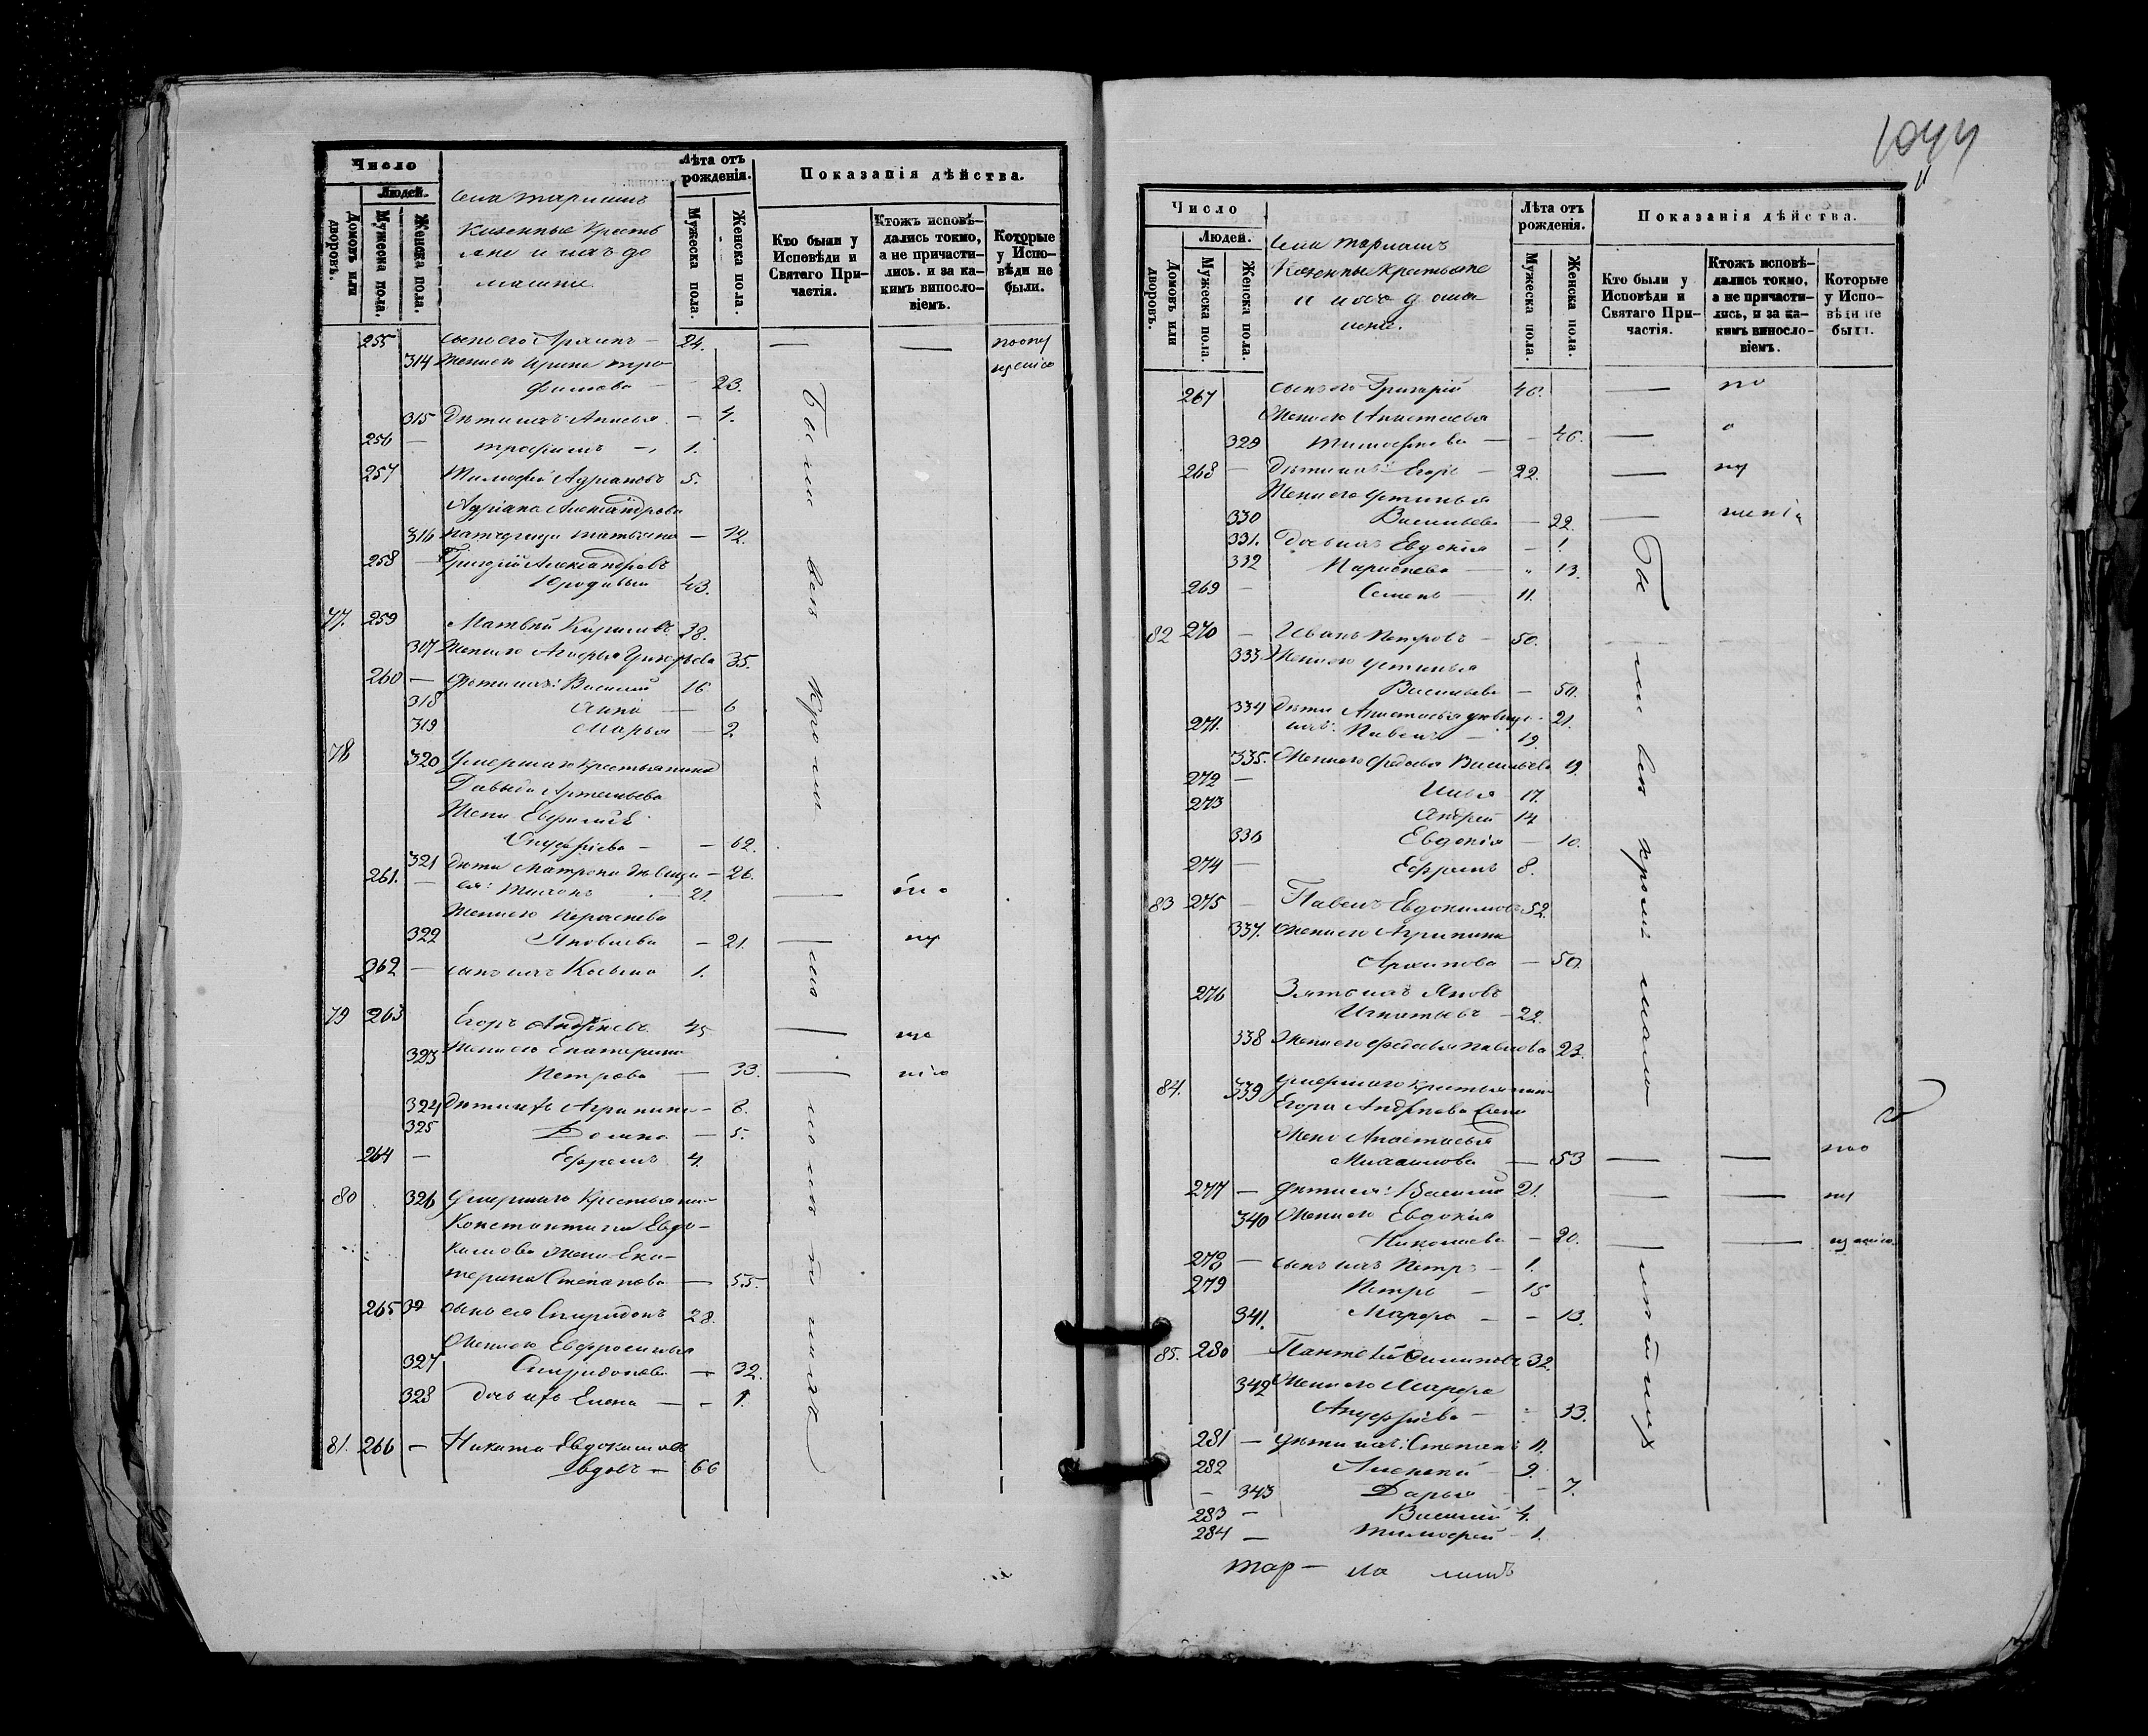 Число
Людей.
Домовъ или дворовъ.
Мужеска пола.
Женска пола.
Села
Казенные Кресть
яне и ихъ до
машніе
Лѣта отъ рожденія.
Мужеска пола.
Женска пола.
Показанія дѣйства.
Кто были у Исповѣди и Святаго Причастія.
Ктожъ исповѣдались токмо, а не причастились. и за какимъ винословіемъ.
Которые у Исповѣди не были.
255 сынъ его Архипъ — 24. — —
314 Жена его Ирина Тро
фимова — 23.
315 Дѣти ихъ: Анисья — 4.
256 — Трофимъ — 1.
257 Тимофей Адріановъ 5.
Адріана Александрова
316 Татьяна — 72.
258 — Григорій Александровъ
Юродивый 43.
77. 259 Матвей Кириловъ 38.
307 Жена его Григорьева 35.
260 — Дѣти ихъ: Василій 16
318 Анна — 6
319 Марья — 2
78 320 Умершаго Крестьянина
Давыда Артемьева
Жена
Ануфріева — 62.
321 Дѣти Матрена дѣвица — 26.
261. — ея: Тихонъ 21.
Жена его Парасковья
322 Яковлева — 21.
262 — сынъ ихъ Козьма 1.
79 263 Егоръ Андреевъ 45
323 Жена его Екатерина
Петрова — 33.
324 Дѣти ихъ Агрипина — 8.
325 Домна — 5.
264 — Ефремъ 4.
80 326 Умершаго Крестьянина
Константина Евдо-
кимова Жена Ека-
терина Степанова — 55.
265 сынъ ея Спиридонъ 28.
Жена его Евфросинья
327 Спиридонова — 32.
328 дочь ихъ Елена — 1.
81. 266 — Никита Евдокимовъ
вдовъ — 66
Были вси кромѣ
1044
Число
Людей.
Домовъ или дворовъ.
Мужеска пола.
Женска пола.
Села
Казенные Крестьяне
и ихъ дома
шніе.
Лѣта отъ рожденія.
Мужеска пола.
Женска пола.
Показанія дѣйства.
Кто были у Исповѣди и Святаго Причастія.
Ктожъ исповѣдались токмо, а не причастились, и за какимъ винословіемъ.
Которые у Исповѣди не были.
267 сынъ его Григорій 40. — по
Жена его Анастасья
329 Тимофеева — 46. — о
268 — Дѣти ихъ: Егоръ — 22. — пу
Жена его Устинья
330 Васильева — 22. — щенію
331. Дочь ихъ Евдокія — 1.
332 Парасковья — 13.
269 — Семенъ — 11.
82 270 — Иванъ Петровъ — 50.
333 Жена его Устинья
Васильева — 50.
334 Дѣти Анастасья дѣвица — 21.
271. ихъ: Павелъ — 19.
335. Жена его Федосья Васильева 19.
272 — Илья — 17.
273 Андрей 14
336 Евдокія — 10.
274 — Ефремъ 8.
83 275 — Павелъ Евдокимовъ 52.
337. Жена его Агрипина
Архипова — 50.
276 Зять ихъ Яковъ
Игнатьевъ — 22.
338 Жена его Федосья Павлова 23.
84. 339 Умершаго Крестьянина
Егора Андреева
Жена Анастасья
Михайлова — 53 — — по о
277 — Дѣти ея: Василій 21. — — пу
340 Жена его Евдокія
Николаева — 20. — — щенію
278 — сынъ ихъ Петръ — 1.
279 Петръ — 15
341. Марфа — — 13.
85. 280 Пантелей 32.
342 Жена его Марфа
Ануфріева — 33.
281 — Дѣти ихъ: Степанъ 11.
282 Алексей — 9.
— 343 Дарья — 7.
283 — Василій 4.
284 — Тимофей — 1.
Были вси кромѣ мало лѣтнихъ